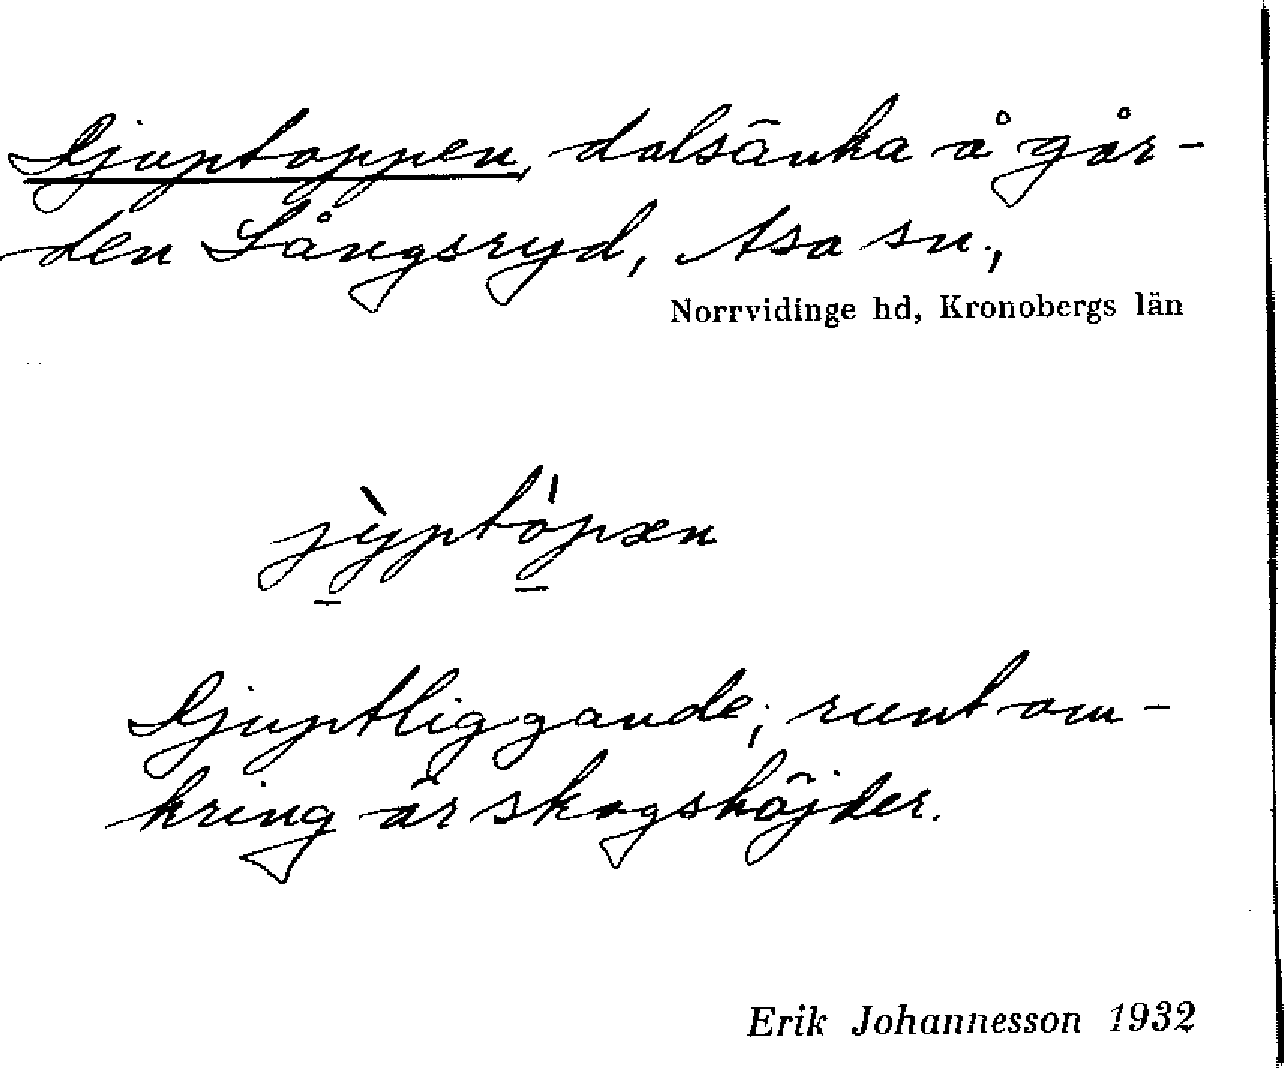 Djuptoppen, dalsänka å går-
den Långsryd, Asa sn.,
Norrvidinge hd, Kronobergs län
jỳptöpæn
Djuptliggande; runt om-
kring är skogshöjder.
Erik Johannesson 1932